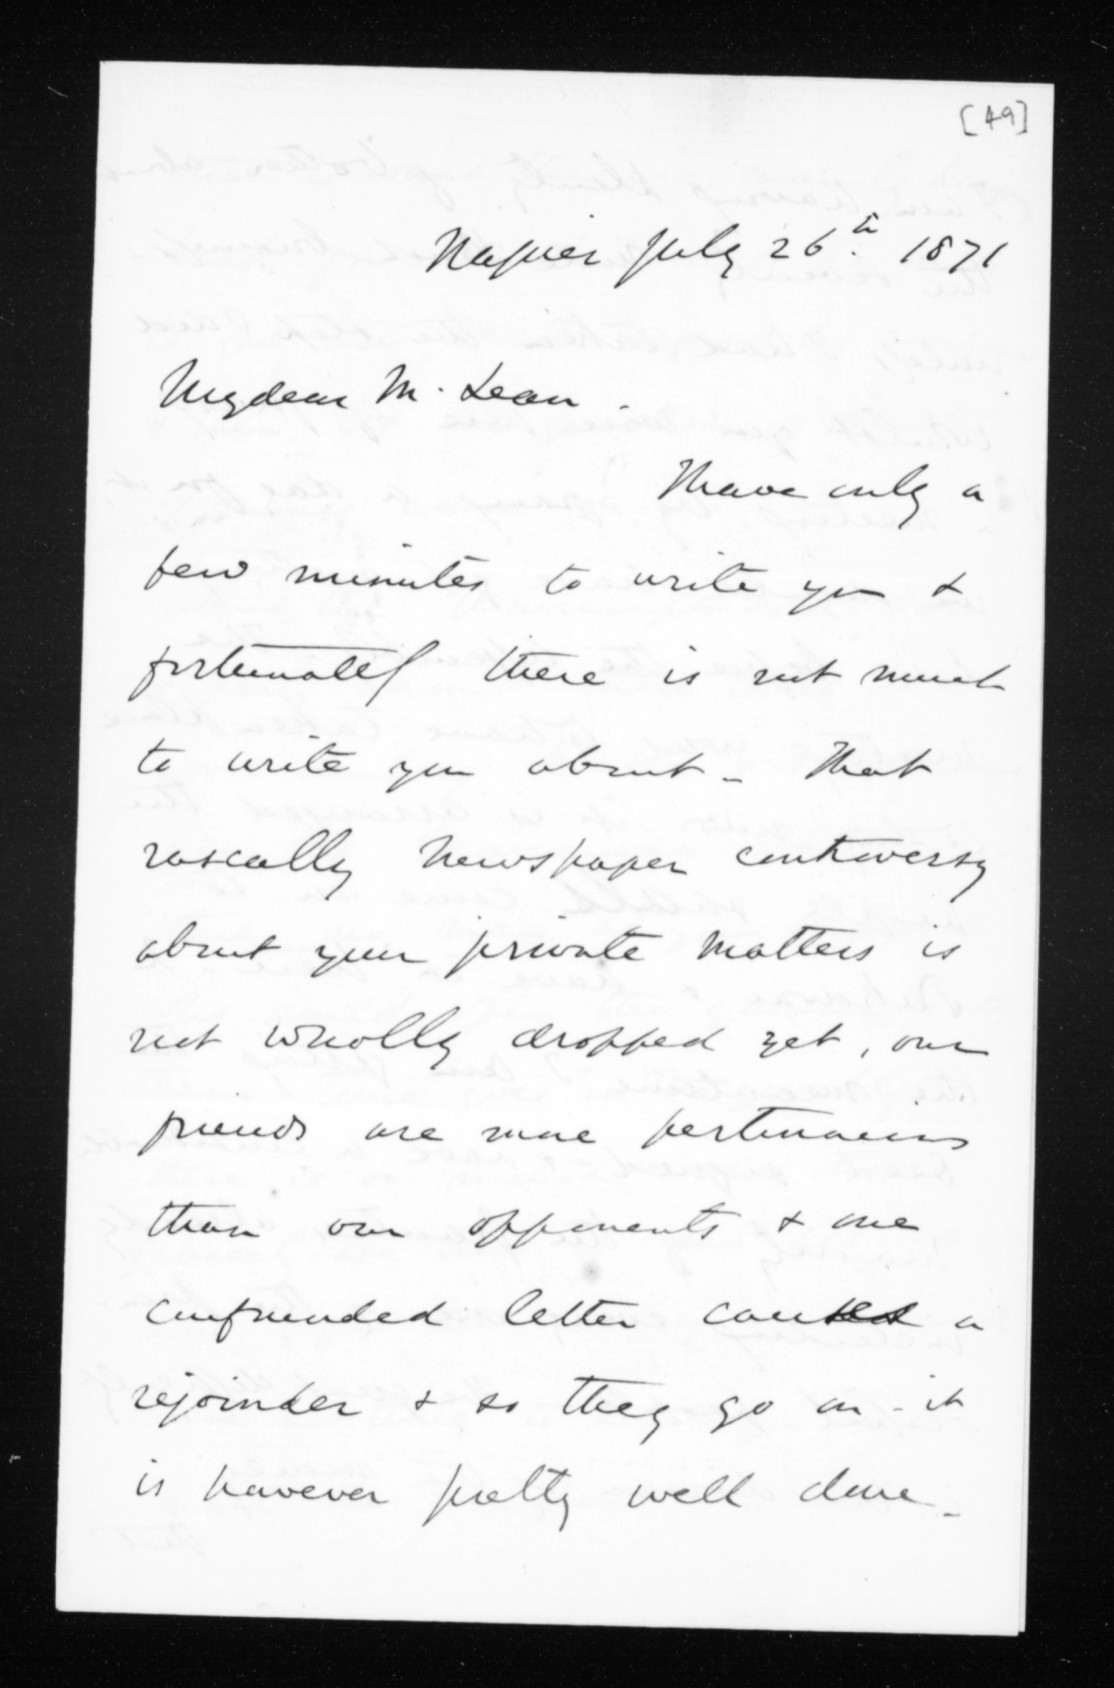 [49]
Napier July 26th. 1871
My dear McLean.
I have only a
few minutes to write you &
fortunately there is not much
to write you about - That
rascally newspaper controversy
about your private matters is
not wholly dropped yet, our
friends are more pertinacious
than our opponents & one
confounded letter causes a
rejoinder & so they go on - it
is however pretty well done -